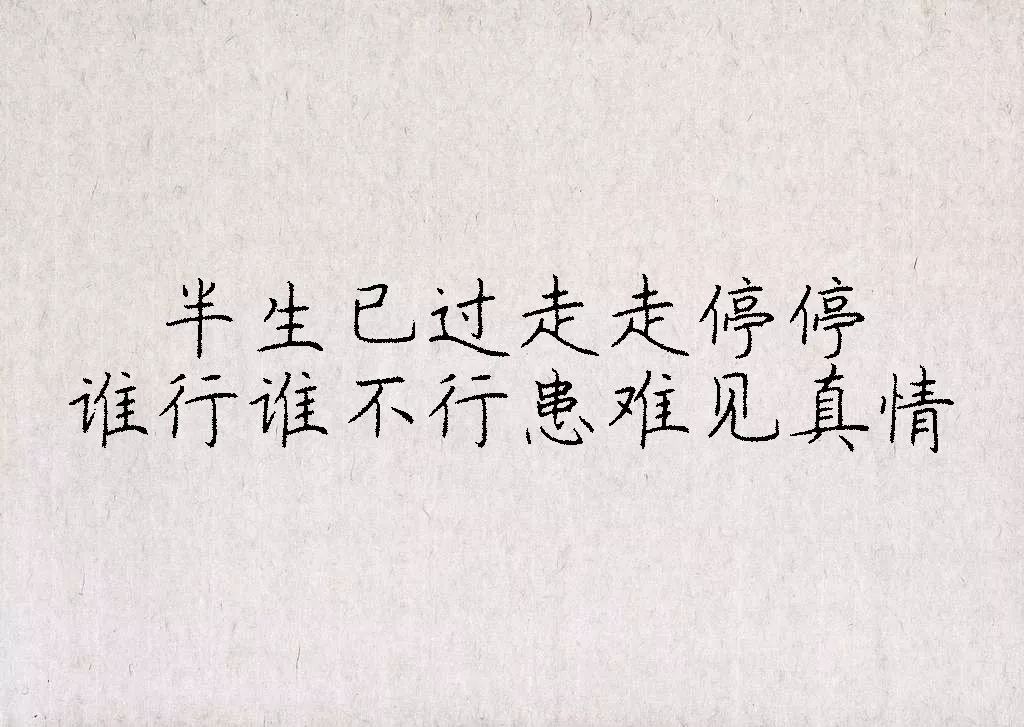 半生已过走走停停
谁行谁不行患难见真情